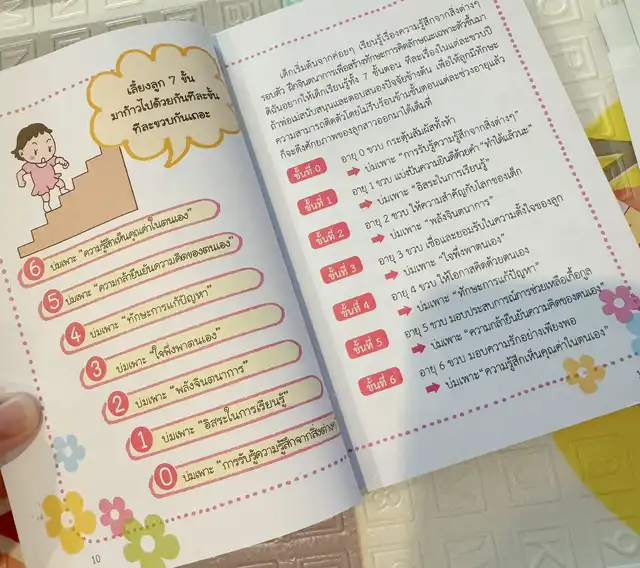 เลี้ยงลูก 7 ขั้น
มาก้าวไปด้วยกันทีละขั้น
ทีละขวบกันเถอะ
6 บ่มเพาะ "ความรู้สึกเห็นคุณค่าในตนเอง"
5 บ่มเพาะ "ความกล้ายืนยันความคิดของตนเอง"
4 บ่มเพาะ "ทักษะการแก้ปัญหา"
3 บ่มเพาะ "ใจพึ่งพาตนเอง"
2 บ่มเพาะ "พลังจินตนาการ"
1 บ่มเพาะ "อิสระในการเรียนรู้"
0 บ่มเพาะ "การรับรู้ความรู้สึกจากสิ่งต่างๆ
10
เด็กเริ่มต้นจากค่อยๆ เรียนรู้เรื่องความรู้สึกจากสิ่งต่างๆ
รอบตัว ฝึกจินตนาการเพื่อสร้างทักษะการคิดลักษณะเฉพาะตัวขึ้นมา
ดิฉันอยากให้เด็กเรียนรู้ทั้ง 7 ขั้นตอน ทีละเรื่องในแต่ละขวบปี
ถ้าพ่อแม่สนับสนุนและตอบสนองปัจจัยข้างต้น เพื่อให้ลูกมีทักษะ
ความสามารถติดตัวโดยไม่รีบร้อนข้ามขั้นตอนแต่ละช่วงอายุแล้ว
ก็จะดึงศักยภาพของลูกสาวออกมาได้เต็มที่
ขั้นที่ 0 อายุ 0 ขวบ กระตุ้นสัมผัสทั้งห้า
บ่มเพาะ "การรับรู้ความรู้สึกจากสิ่งต่างๆ"
ขั้นที่ 1 อายุ 1 ขวบ แบ่งปันความยินดีด้วยคำ "ทำได้แล้วนะ"
บ่มเพาะ "อิสระในการเรียนรู้"
ขั้นที่ 2 อายุ 2 ขวบ ให้ความสำคัญกับโลกของเด็ก
บ่มเพาะ "พลังจินตนาการ"
ขั้นที่ 3 อายุ 3 ขวบ เชื่อและยอมรับในความตั้งใจของลูก
บ่มเพาะ "ใจพึ่งพาตนเอง"
ขั้นที่ 4 อายุ 4 ขวบ ให้โอกาสคิดด้วยตนเอง
บ่มเพาะ "ทักษะการแก้ปัญหา"
ขั้นที่ 5 อายุ 5 ขวบ มอบประสบการณ์การช่วยเหลือเกื้อกูล
บ่มเพาะ "ความกล้ายืนยันความคิดของตนเอง"
ขั้นที่ 6 อายุ 6 ขวบ มอบความรักอย่างเพียงพอ
บ่มเพาะ "ความรู้สึกเห็นคุณค่าในตนเอง"